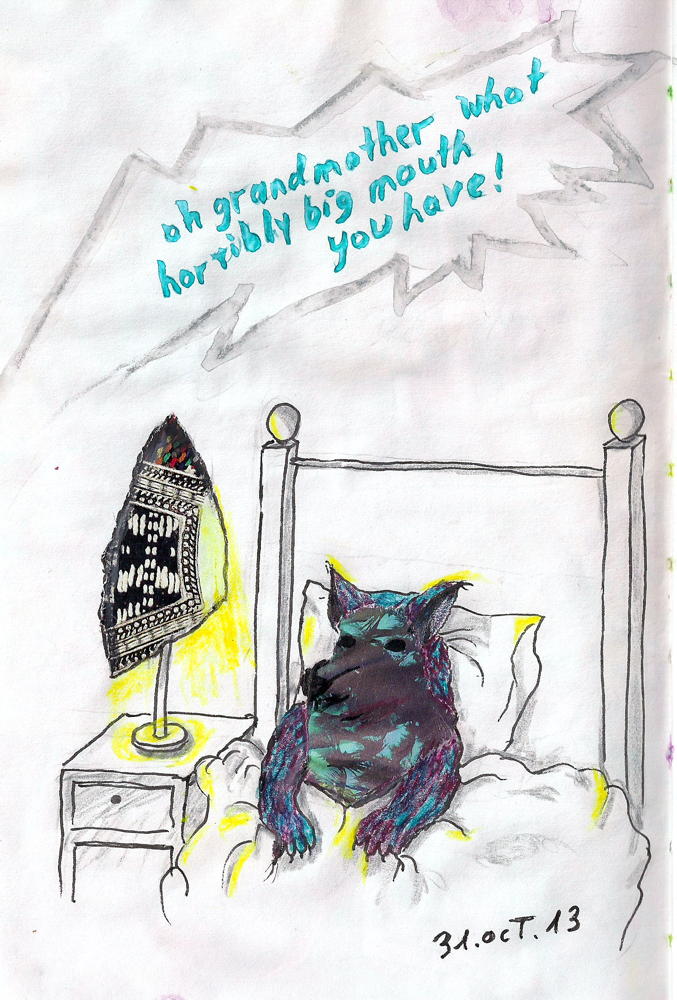 oh grandmother what
horribly big mouth
you have!
31.ocT.13